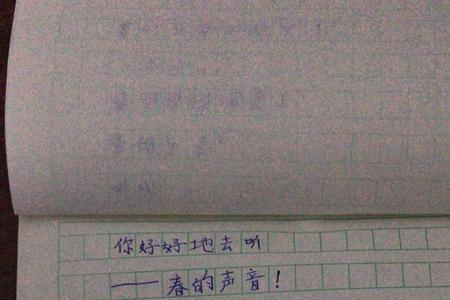 你好好地去听
——春的声音！